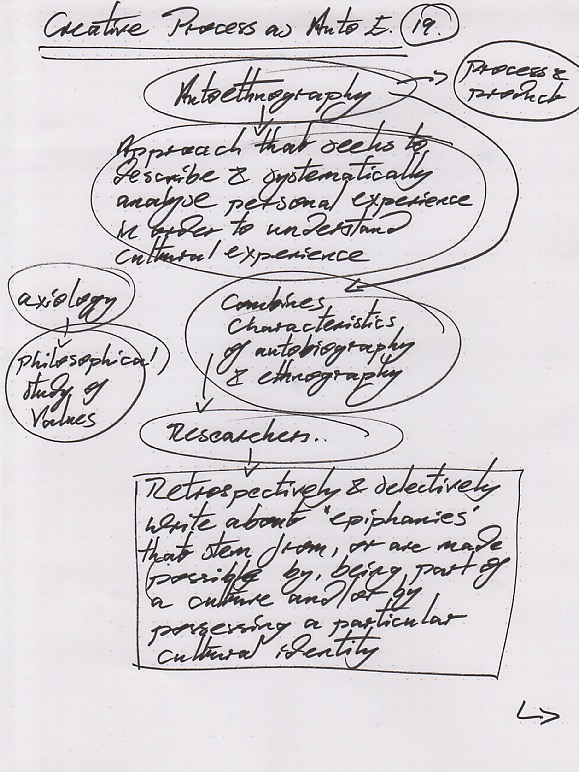 Creative Process as Auto E. 19.
Autoethnography
Process &
product
Approach that seeks to
describe & systematically
analyse personal experience
in order to understand
cultural experience
axiology
philosophical
study of
Values
Combines
characteristics
of autobiography
& ethnography
Researchers..
Retrospectively & selectively
write about "epiphanies"
that stem from, or are made
possible by, being part of
a culture and/or by
possessing a particular
cultural identity